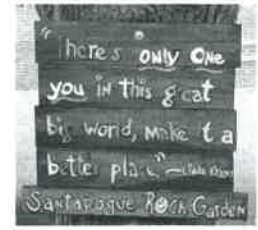 "There's only One
you in this great
big world, make t a
better place"
Santapogue Rock Garden